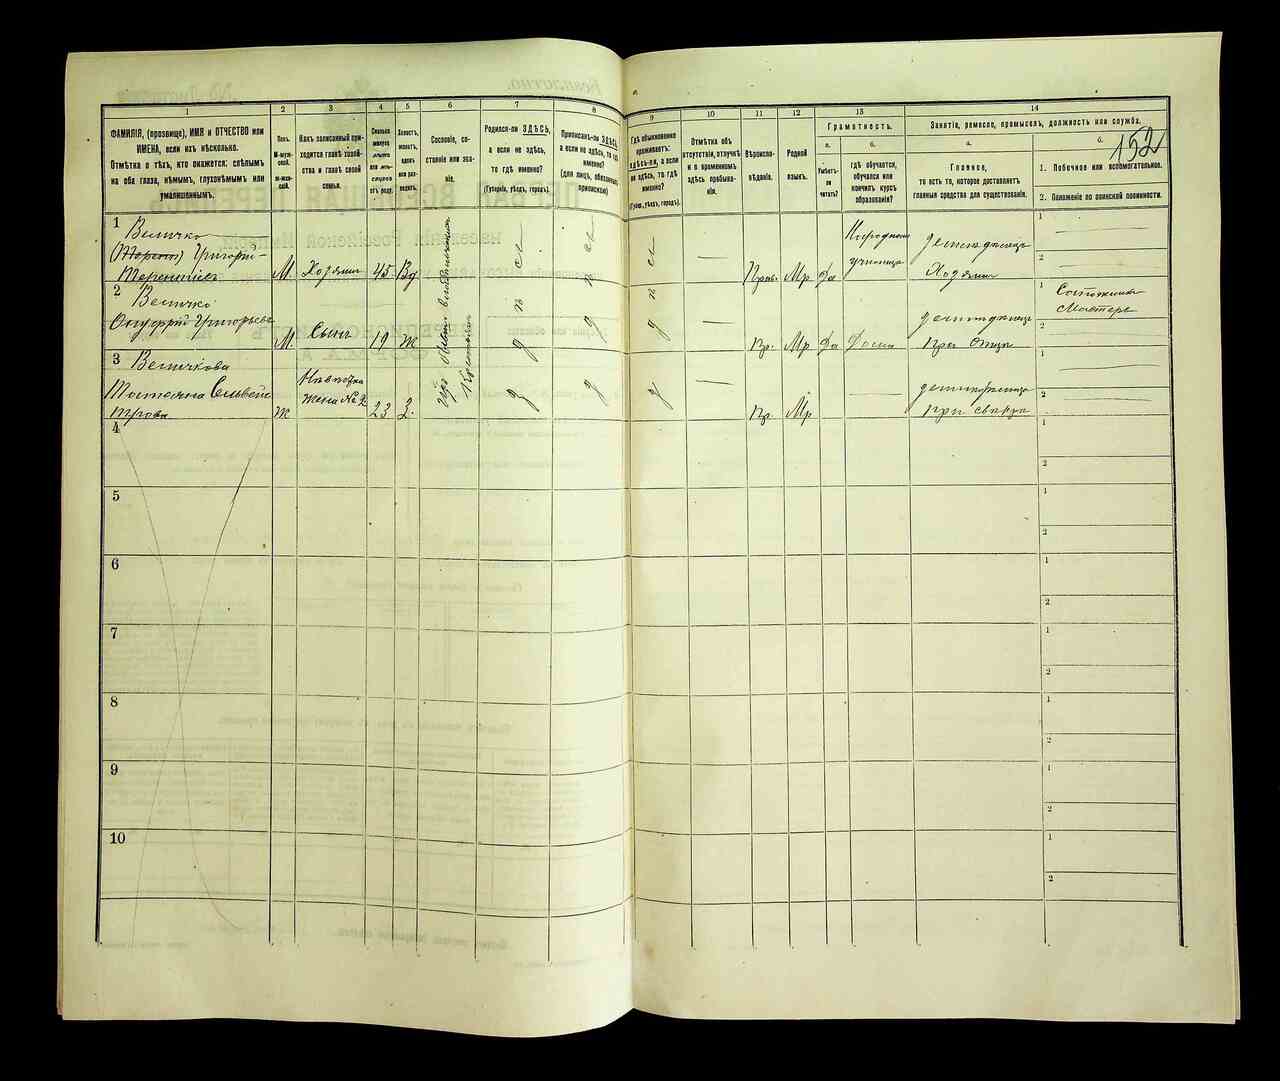 1
ФАМИЛІЯ, (прозвище), ИМЯ и ОТЧЕСТВО или
ИМЕНА, если ихъ нѣсколько.
Отмѣтка о тѣхъ, кто окажется: слѣпымъ
на оба глаза, нѣмымъ, глухонѣмымъ или
умалишеннымъ.
2
Полъ.
М-мужской.
Ж-женскій.
3
Какъ записанный при-
ходится главѣ хозяй-
ства и главѣ своей
семьи.
4
Сколько
минуло
лѣтъ
или мѣся-
цевъ
отъ роду.
5
Холостъ,
женатъ,
вдовъ
или раз-
веденъ.
6
Сословіе, со-
стояніе или зва-
ніе.
7
Родился-ли ЗДѢСЬ,
а если не здѣсь,
то гдѣ именно?
(Губернія, уѣздъ, городъ).
8
Приписанъ-ли ЗДѢСЬ,
а если не здѣсь, то гдѣ
именно?
(для лицъ, обязанныхъ
припиской)
9
Гдѣ обыкновенно
проживаетъ:
ЗДѢСЬ-ли, а если
не здѣсь, то гдѣ
именно?
(Губер., уѣздъ, городъ).
10
Отмѣтка объ
отсутствіи, отлучкѣ
и о временномъ
здѣсь пребыва-
ніи.
11
Вѣроиспо-
вѣданіе.
12
Родной
языкъ.
13
Грамотность.
а.
Умѣетъ-
ли
читать?
б.
гдѣ обучается,
обучался или
кончилъ курсъ
образованія?
14
Занятіе, ремесло, промыселъ, должность или служба.
а.
Главное,
то есть то, которое доставляетъ
главныя средства для существованія.
б.
1. Побочное или вспомогательное.
2. Положеніе по воинской повинности.
152
1 Величко
Григорій
Терентіевъ
М. Хозяинъ 45 Вд
Прав. Мр Да
Народномъ
училищѣ
Хозяинъ
1
2
2 Величко
Григорьевъ
М. Сынъ 19 ж
Пр. Мр Да
При Отцѣ
1
Мастеръ
2
3 Величкова
Татьяна
ж
Невѣстка
жена № 2
23 З.
Пр. Мр
1
2
4
1
2
5
1
2
6
1
2
7
1
2
8
1
2
9
1
2
10
1
2